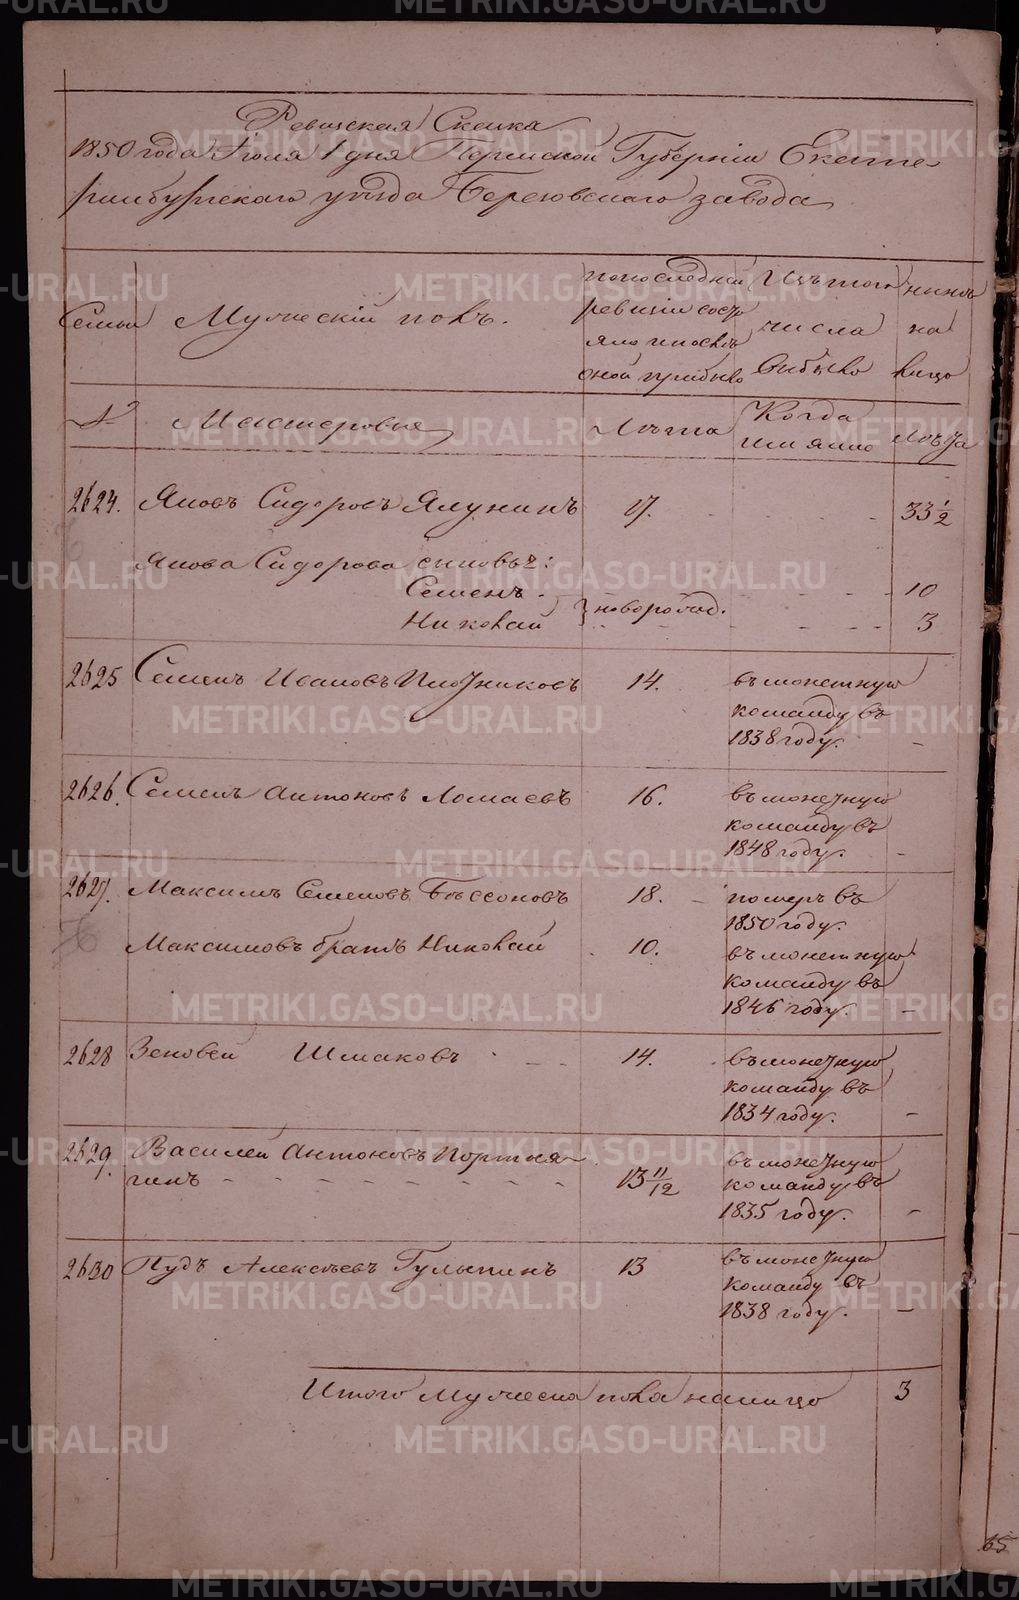 Ревизская Сказка
1850 года Июля 1 дня Пермской Губернiи Екате-
ринбургскаго уѣзда Березовскаго завода
Семьи
Мужескiй полъ.
попоследней
ревизiи состо
яло и послѣ
оной прибыло
Изъ того
числа
выбыло
нынѣ
на
лицо
№
Мастеровые
Лѣта
Когда
имянно
Лѣта
2624. Яковъ Сидоровъ Ялунинъ 17. 33 1/2
Якова Сидорова сыновья:
Семенъ 10
новорожд.
Николай 3
2625 Семенъ Ивановъ Плотниковъ 14. въ монетную
команду въ
1838 году.
2626. Семенъ Антоновъ Ломаевъ 16. въ монетную
команду въ
1848 году.
2627. Максимъ Семеновъ Бѣссоновъ 18. померъ въ
1850 году.
Максимовъ братъ Николай 10. въ монетную
команду въ
1846 году.
2628 Зеновей Шмаковъ 14. въ монетную
команду въ
1834 году.
2629. Василей Антоновъ Портня-
гинъ 13 11/12 въ монетную
команду въ
1835 году.
2630 Пудъ Алексѣевъ Гулыпинъ 13 въ монетную
команду въ
1838 году.
Итого мужеска пола налицо 3
65
METRIKI.GASO-URAL.RU